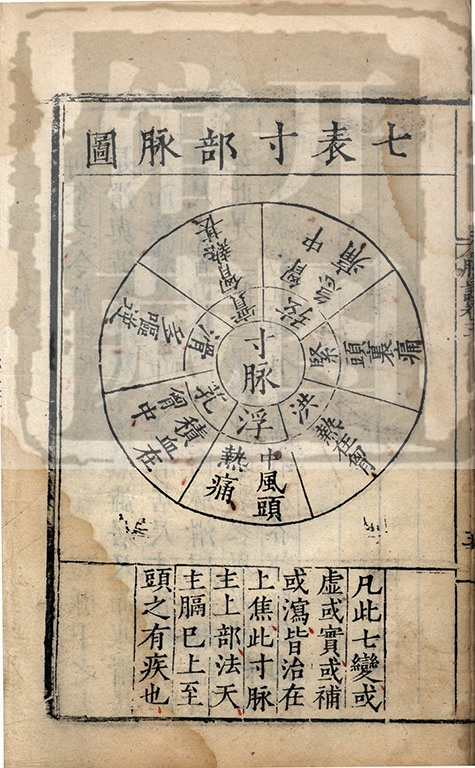 七表寸部脉圖
寸脉
浮
中風頭
熱痛
芤
積血在
胷中
滑
嘔逆
實
胷熱甚
弦
胷中急痛
緊
頭裏痛
洪
熱在胷
凡此七變或
虛或實或補
或瀉皆治在
上焦此寸脉
主上部法天
主膈巳上至
頭之有疾也